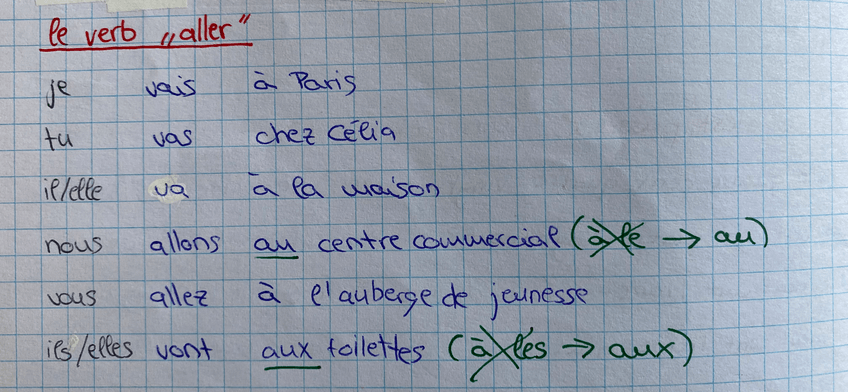 le verb „aller"
je vais à Paris
tu vas chez Célia
il/elle va à la maison
nous allons au centre commercial (à le → au)
vous allez à l'auberge de jeunesse
ils/elles vont aux toilettes (à les → aux)